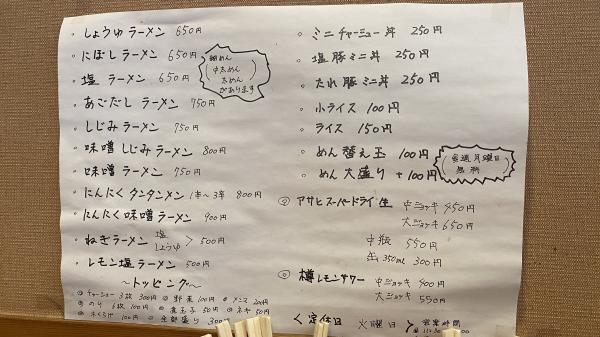 ・しょうゆラーメン 650円
・にぼしラーメン 650円
・塩ラーメン 650円
細めん
中太めん
太めん
があります
・あごだしラーメン 750円
・しじみラーメン 750円
・味噌しじみラーメン 800円
・味噌ラーメン 750円
・にんにくタンタンメン 1辛〜3辛 800円
・にんにく味噌ラーメン 900円
・ねぎラーメン 塩 しょうゆ > 500円
・レモン塩ラーメン 500円
〜トッピング〜
◎チャーシュー3枚 300円 ◎野菜 100円 ◎メンマ 200円
◎のり 6枚 100円 ◎煮玉子 50円 ◎ネギ 50円
◎木くらげ 100円 ◎全部盛り 300円
。ミニチャーシュー丼 250円
。塩豚ミニ丼 250円
。たれ豚ミニ丼 250円
。小ライス 100円
。ライス 150円
。めん替え玉 100円
。めん大盛り +100円
毎週月曜日
無料
◎アサヒスーパードライ生 中ジョッキ 450円
大ジョッキ 650円
中瓶 550円
缶350ml 300円
◎樽レモンサワー 中ジョッキ 400円
大ジョッキ 550円
く定休日 火曜日 > 営業時間